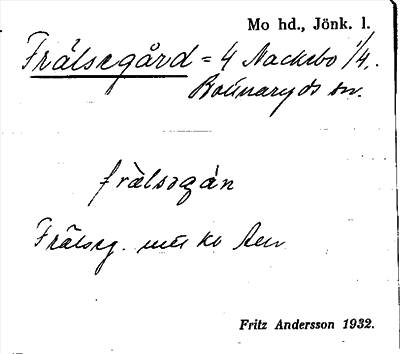 Mo hd., Jönk. l.
Frälsegård = 4 Nackebo 1/4.
Bottnaryds sn.
frälsəgán
Frälseg.
Fritz Andersson 1932.